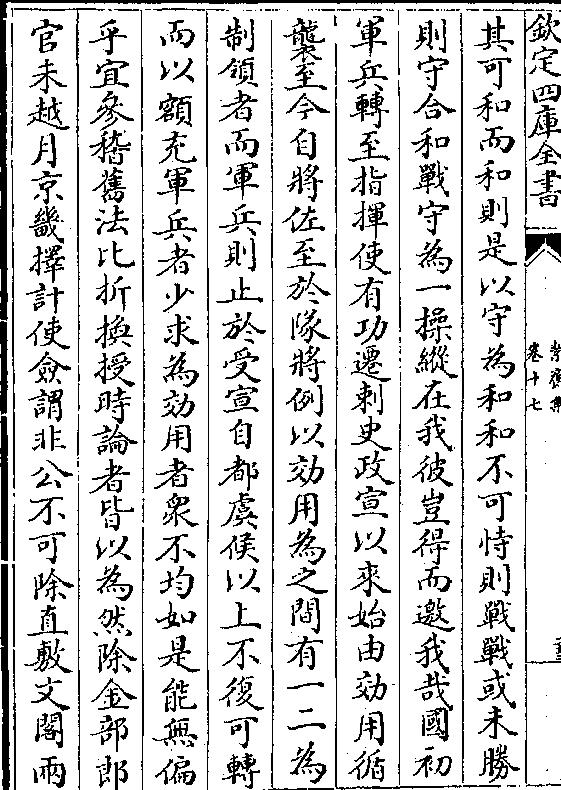 欽定四庫全書
卷十七
其可和而和則是以守為和和不可恃則戰戰或未勝
則守合和戰守為一操縱在我彼豈得而邀我哉國初
軍兵轉至指揮使有功遷刺史政宣以來始由効用循
襲至今自將佐至於隊將例以効用為之間有一二為
制領者而軍兵則止於受宣自都虞候以上不復可轉
而以額充軍兵者少求為効用者衆不均如是能無偏
乎宜參稽舊法比折換授時論者皆以為然除金部郎
官未越月京畿擇計使僉謂非公不可除直敷文閣兩